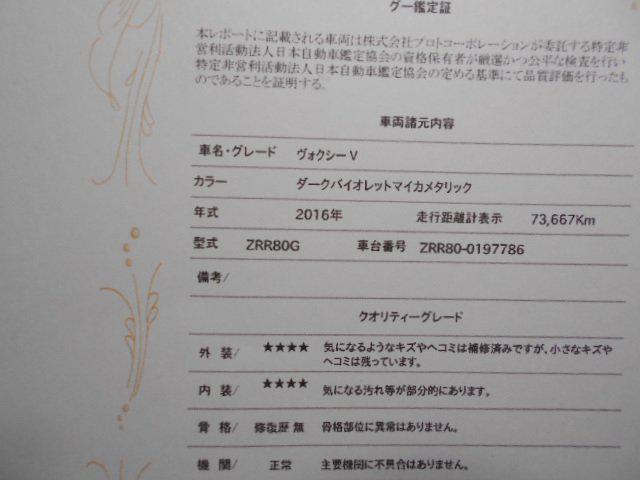 グー鑑定証
本レポートに記載される車両は株式会社プロトコーポレーションが委託する特定非
営利活動法人日本自動車鑑定協会の資格保有者が厳選かつ公平な検査を行い
特定非営利活動法人日本自動車鑑定協会の定める基準にて品質評価を行ったも
のであることを証明する。
車両諸元内容
車名・グレード ヴォクシー V
カラー ダークバイオレットマイカメタリック
年式 2016年 走行距離計表示 73,667Km
型式 ZRR80G 車台番号 ZRR80-0197786
備考/
クオリティーグレード
外 装/ ★★★★ 気になるようなキズやヘコミは補修済みですが、小さなキズや
ヘコミは残っています。
内 装/ ★★★★ 気になる汚れ等が部分的にあります。
骨 格/ 修復歴 無 骨格部位に異常はありません。
機 関/ 正常 主要機関に不具合はありません。